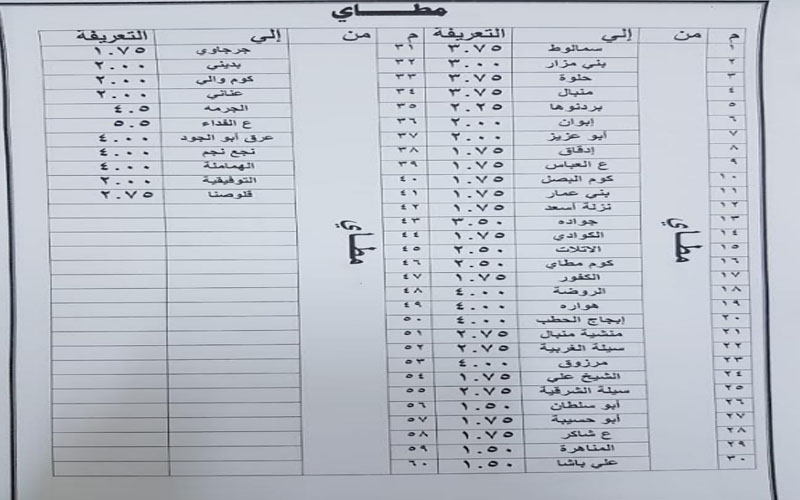 مطاي
م من إلي التعريفة م من إلي التعريفة
١ سمالوط ٣.٧٥ ٣١ جرجاوي ١.٧٥
٢ بني مزار ٣.٠٠ ٣٢ بديني ٢.٠٠
٣ حلوة ٣.٧٥ ٣٣ كوم والي ٢.٠٠
٤ منبال ٣.٧٥ ٣٤ عناني ٢.٠٠
٥ بردنوها ٢.٢٥ ٣٥ الجرمه ٤.٥
٦ إبوان ٢.٠٠ ٣٦ ع الفداء ٥.٥
٧ أبو عزيز ٢.٠٠ ٣٧ عرق أبو الجود ٤.٠٠
٨ إدقاق ١.٧٥ ٣٨ نجع نجم ٤.٠٠
٩ ع العباس ١.٧٥ ٣٩ الهماملة ٤.٠٠
١٠ كوم البصل ١.٧٥ ٤٠ التوفيقية ٢.٠٠
١١ بني عمار ١.٧٥ ٤١ قلوصنا ٢.٧٥
١٢ نزلة أسعد ١.٧٥ ٤٢
١٣ جواده ٣.٥٠ ٤٣
مطاي ١٤ الكوادي ١.٧٥ ٤٤ مطاي
١٥ الاتلات ٢.٥٠ ٤٥
١٦ كوم مطاي ٢.٥٠ ٤٦
١٧ الكفور ١.٧٥ ٤٧
١٨ الروضة ٤.٠٠ ٤٨
١٩ هواره ٤.٠٠ ٤٩
٢٠ إبجاج الحطب ٤.٠٠ ٥٠
٢١ منشية منبال ٢.٧٥ ٥١
٢٢ سيلة الغربية ٢.٧٥ ٥٢
٢٣ مرزوق ٤.٠٠ ٥٣
٢٤ الشيخ علي ١.٧٥ ٥٤
٢٥ سيلة الشرقية ٢.٧٥ ٥٥
٢٦ أبو سلطان ١.٥٠ ٥٦
٢٧ أبو حسيبة ١.٧٥ ٥٧
٢٨ ع شاكر ١.٧٥ ٥٨
٢٩ المناهرة ١.٥٠ ٥٩
٣٠ علي باشا ١.٥٠ ٦٠